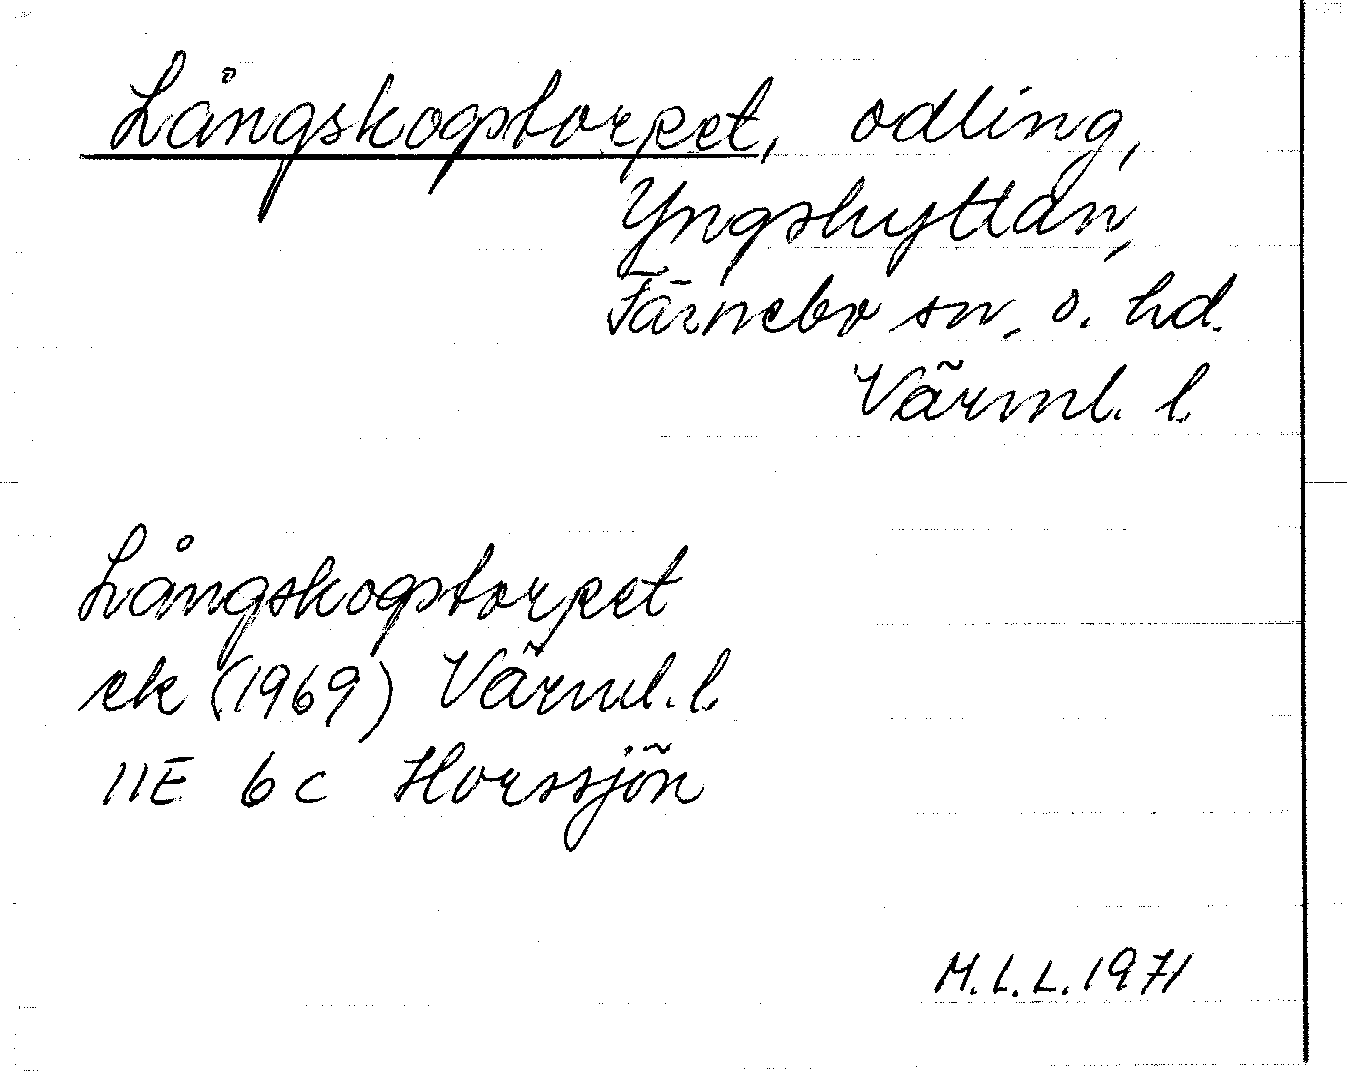 Långskogstorpet, odling,
Yngshyttan,
Färnebo sn. o. hd.
Värml. l.
Långskogstorpet
ek (1969) Värml. l.
11E 6c Horssjön
M.L.L. 1971